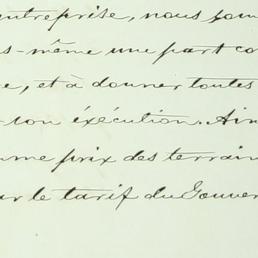 entreprise, nous som
s-même une part co
e, et à donner toutes
son éxécution. Ain
me prix des terrain
ar le tarif du Gouver